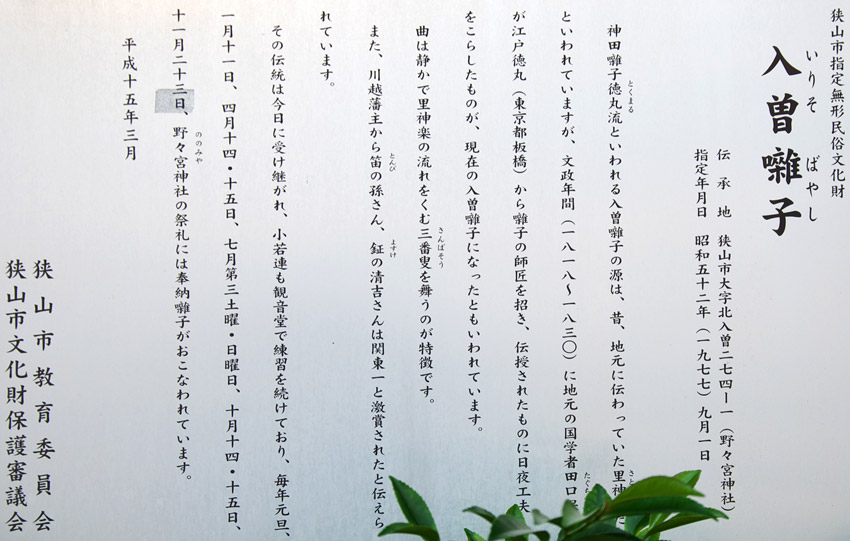 狭山市指定無形民俗文化財
いりそ ばやし
入曽囃子
伝承地 狭山市大字北入曽二七四ー一（野々宮神社）
指定年月日 昭和五十二年（一九七七）九月一日
とくまる
神田囃子徳丸流といわれる入曽囃子の源は、昔、地元に伝わっていた里神
といわれていますが、文政年間（一八一八～一八三〇）に地元の国学者田口
が江戸徳丸（東京都板橋）から囃子の師匠を招き、伝授されたものに日夜工夫
をこらしたものが、現在の入曽囃子になったともいわれています。
さんばそう
曲は静かで里神楽の流れをくむ三番叟を舞うのが特徴です。
とんび ますけ
また、川越藩主から笛の孫さん、鉦の清吉さんは関東一と激賞されたと伝えら
れています。
その伝統は今日に受け継がれ、小若連も観音堂で練習を続けており、毎年元旦、
一月十一日、四月十四・十五日、七月第三土曜・日曜日、十月十四・十五日、
ののみや
十一月二十三日、野々宮神社の祭礼には奉納囃子がおこなわれています。
平成十五年三月
狭山市教育委員会
狭山市文化財保護審議会